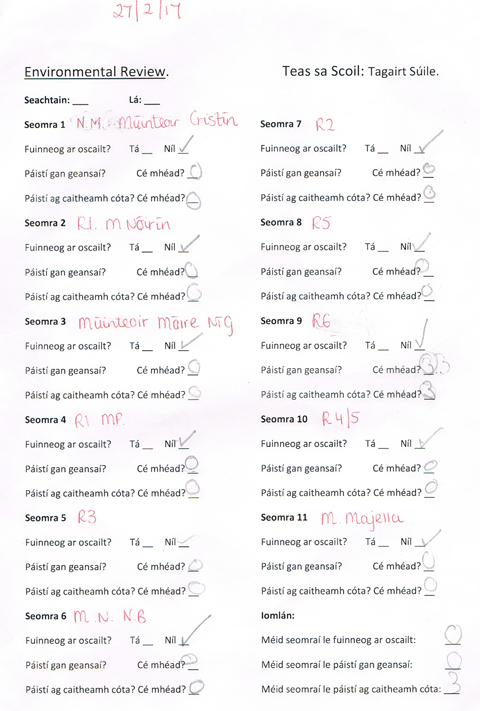 27/2/17
Environmental Review.
Teas sa Scoil: Tagairt Súile.
Seachtain: ___ Lá: ___
Seomra 1 N.M. Múinteoir Cristín
Fuinneog ar oscailt? Tá __ Níl ✓
Páistí gan geansaí? Cé mhéad? 0
Páistí ag caitheamh cóta? Cé mhéad? 0
Seomra 2 R1. M Nóirín
Fuinneog ar oscailt? Tá __ Níl ✓
Páistí gan geansaí? Cé mhéad? 0
Páistí ag caitheamh cóta? Cé mhéad? 0
Seomra 3 Múinteoir Máire NíG
Fuinneog ar oscailt? Tá __ Níl ✓
Páistí gan geansaí? Cé mhéad? 0
Páistí ag caitheamh cóta? Cé mhéad? 0
Seomra 4 R1 MP.
Fuinneog ar oscailt? Tá __ Níl ✓
Páistí gan geansaí? Cé mhéad? 0
Páistí ag caitheamh cóta? Cé mhéad? 0
Seomra 5 R3
Fuinneog ar oscailt? Tá __ Níl ✓
Páistí gan geansaí? Cé mhéad? 0
Páistí ag caitheamh cóta? Cé mhéad? 0
Seomra 6 M.N. N.B.
Fuinneog ar oscailt? Tá __ Níl ✓
Páistí gan geansaí? Cé mhéad?
Páistí ag caitheamh cóta? Cé mhéad? 0
Seomra 7 R2
Fuinneog ar oscailt? Tá __ Níl ✓
Páistí gan geansaí? Cé mhéad? 0
Páistí ag caitheamh cóta? Cé mhéad? 0
Seomra 8 R5
Fuinneog ar oscailt? Tá __ Níl ✓
Páistí gan geansaí? Cé mhéad? 0
Páistí ag caitheamh cóta? Cé mhéad? 0
Seomra 9 R6
Fuinneog ar oscailt? Tá __ Níl ✓
Páistí gan geansaí? Cé mhéad?
Páistí ag caitheamh cóta? Cé mhéad? 3
Seomra 10 R4/5
Fuinneog ar oscailt? Tá __ Níl ✓
Páistí gan geansaí? Cé mhéad? 0
Páistí ag caitheamh cóta? Cé mhéad? 0
Seomra 11 M. Majella
Fuinneog ar oscailt? Tá __ Níl ✓
Páistí gan geansaí? Cé mhéad? 0
Páistí ag caitheamh cóta? Cé mhéad? 0
Iomlán:
Méid seomraí le fuinneog ar oscailt: 0
Méid seomraí le páistí gan geansaí: 0
Méid seomraí le páistí ag caitheamh cóta: 3